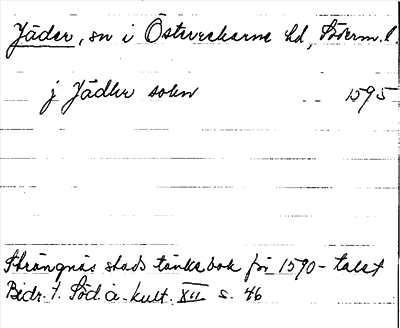 Jäder, sn i Österrekarne hd, Söderm. l.
j Jädhr sokn 1595
Strängnäs stads tänkebok för 1590-talet
Bidr. t. Söd. ä. kult. XII s. 46